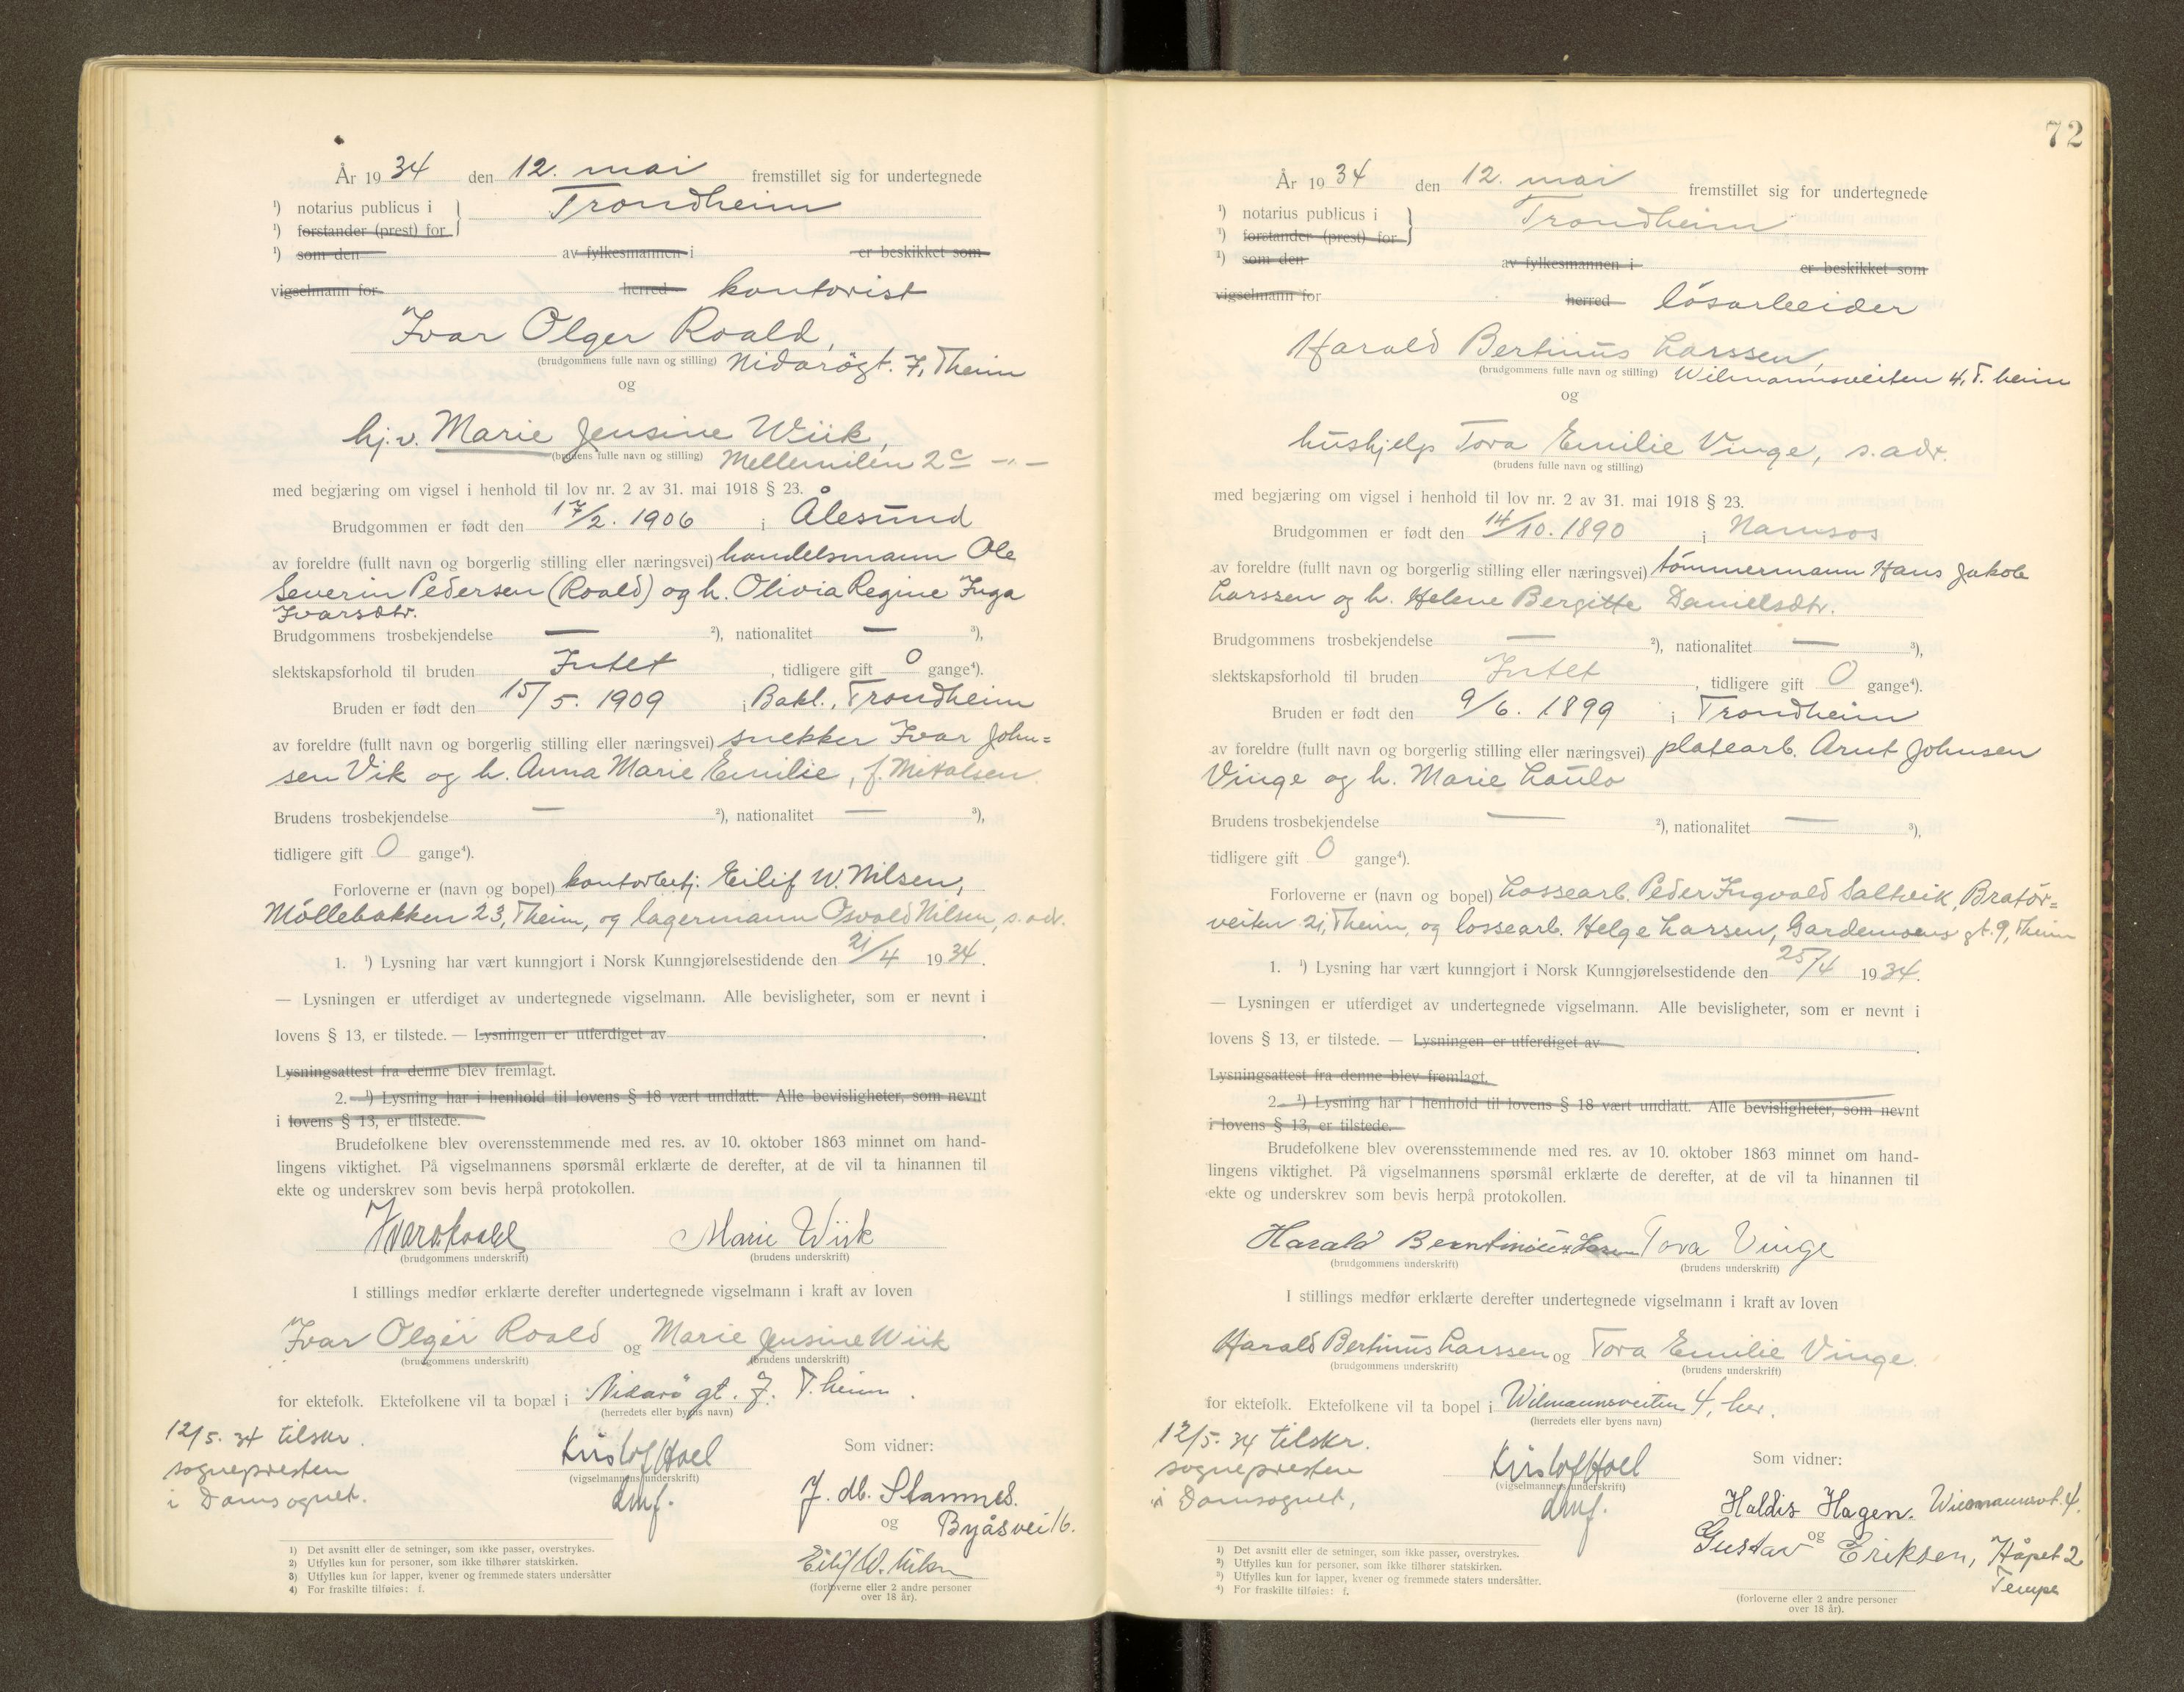 År 1934 den 12. mai fremstillet sig for undertegnede
¹) notarius publicus i Trondheim
¹) forstander (prest) for
¹) som den av fylkesmannen i er beskikket som
vigselmann for herred kontorist
Ivar Olger Roald,
(brudgommens fulle navn og stilling) Nidarögt. 7, Theim
og
hj.v. Marie Jensine Wiik,
(brudens fulle navn og stilling) Mellemilen 2c -"-
med begjæring om vigsel i henhold til lov nr. 2 av 31. mai 1918 § 23.
Brudgommen er født den 17/2. 1906 i Ålesund
av foreldre (fullt navn og borgerlig stilling eller næringsvei) handelsmann Ole
Severin Pedersen (Roald) og h. Olivia Regine Inga
Ivarsdtr.
Brudgommens trosbekjendelse — ²), nationalitet — ³),
slektskapsforhold til bruden Intet, tidligere gift 0 gange⁴).
Bruden er født den 15/5. 1909 i Bakl., Trondheim
av foreldre (fullt navn og borgerlig stilling eller næringsvei) snekker Ivar John=
sen Vik og h. Anna Marie Emilie, f. Mikalsen.
Brudens trosbekjendelse — ²), nationalitet — ³),
tidligere gift 0 gange⁴).
Forloverne er (navn og bopel) kontorbetj. Eilif W. Nilsen,
Möllebakken 23, Theim, og lagermann Osvald Nilsen, s. adr.
1. ¹) Lysning har vært kunngjort i Norsk Kunngjørelsestidende den 21/4 1934.
— Lysningen er utferdiget av undertegnede vigselmann. Alle bevisligheter, som er nevnt i
lovens § 13, er tilstede. — Lysningen er utferdiget av
Lysningsattest fra denne blev fremlagt.
2. ¹) Lysning har i henhold til lovens § 18 vært undlatt. Alle bevisligheter, som nevnt
i lovens § 13, er tilstede.
Brudefolkene blev overensstemmende med res. av 10. oktober 1863 minnet om hand-
lingens viktighet. På vigselmannens spørsmål erklærte de derefter, at de vil ta hinannen til
ekte og underskrev som bevis herpå protokollen.
Ivar O Roald Marie Wiik
(brudgommens underskrift) (brudens underskrift)
I stillings medfør erklærte derefter undertegnede vigselmann i kraft av loven
Ivar Olger Roald og Marie Jensine Wiik
(brudgommens underskrift) (brudens underskrift)
for ektefolk. Ektefolkene vil ta bopæl i Nidarö gt. 7. T.heim.
(herredets eller byens navn)
12/5. 34 tilskr.
sognepresten
i Domsognet.
Kristof Hoel
(vigselmannens underskrift)
dmf.
Som vidner:
J. db. Stamnes.
og Byåsvei 16.
Eilif W. Nilsen
(forloverne eller 2 andre personer
over 18 år).
1) Det avsnitt eller de setninger, som ikke passer, overstrykes.
2) Utfylles kun for personer, som ikke tilhører statskirken.
3) Utfylles kun for lapper, kvener og fremmede staters undersåtter
4) For fraskilte tilføies: f.
72
År 1934 den 12. mai fremstillet sig for undertegnede
¹) notarius publicus i Trondheim
¹) forstander (prest) for
¹) som den av fylkesmannen i er beskikket som
vigselmann for herred lösarbeider
Harald Bertinus Larssen,
(brudgommens fulle navn og stilling) Wilmannsveiten 4, T. heim
og
hushjelp Tora Emilie Vinge, s. adr.
(brudens fulle navn og stilling)
med begjæring om vigsel i henhold til lov nr. 2 av 31. mai 1918 § 23.
Brudgommen er født den 14/10. 1890 i Namsos
av foreldre (fullt navn og borgerlig stilling eller næringsvei) tömmermann Hans Jakob
Larssen og h. Helene Bergitte Danielsdtr.
Brudgommens trosbekjendelse — ²), nationalitet — ³),
slektskapsforhold til bruden Intet, tidligere gift 0 gange⁴).
Bruden er født den 9/6. 1899 i Trondheim
av foreldre (fullt navn og borgerlig stilling eller næringsvei) platearb. Arnt Johnsen
Vinge og h. Marie Laulo
Brudens trosbekjendelse — ²), nationalitet — ³),
tidligere gift 0 gange⁴).
Forloverne er (navn og bopel) Lossearb. Peder Ingvald Saltvik, Bratör=
veiten 21, Theim, og lossearb. Helge Larsen, Gardemoens gt. 9, Theim
1. ¹) Lysning har vært kunngjort i Norsk Kunngjørelsestidende den 25/4 1934.
— Lysningen er utferdiget av undertegnede vigselmann. Alle bevisligheter, som er nevnt i
lovens § 13, er tilstede. — Lysningen er utferdiget av
Lysningsattest fra denne blev fremlagt.
2. ¹) Lysning har i henhold til lovens § 18 vært undlatt. Alle bevisligheter, som nevnt
i lovens § 13, er tilstede.
Brudefolkene blev overensstemmende med res. av 10. oktober 1863 minnet om hand-
lingens viktighet. På vigselmannens spørsmål erklærte de derefter, at de vil ta hinannen til
ekte og underskrev som bevis herpå protokollen.
Harald Larsen Tora Vinge
(brudgommens underskrift) (brudens underskrift)
I stillings medfør erklærte derefter undertegnede vigselmann i kraft av loven
Harald Bertinus Larssen og Tora Emilie Vinge.
(brudgommens underskrift) (brudens underskrift)
for ektefolk. Ektefolkene vil ta bopel i Wilmannsveiten 4, her.
(herredets eller byens navn)
12/5. 34 tilskr.
sognepresten
i Domsognet,
Kristof Hoel
(vigselmannens underskrift)
dmf.
Som vidner:
Haldis Hagen. 4.
og
Gustav Eriksen, Håpet 2
Tempe
(forloverne eller 2 andre personer
over 18 år).
1) Det avsnitt eller de setninger, som ikke passer, overstrykes.
2) Utfylles kun for personer, som ikke tilhører statskirken.
3) Utfylles kun for lapper, kvener og fremmede staters undersåtter.
4) For fraskilte tilføies: f.